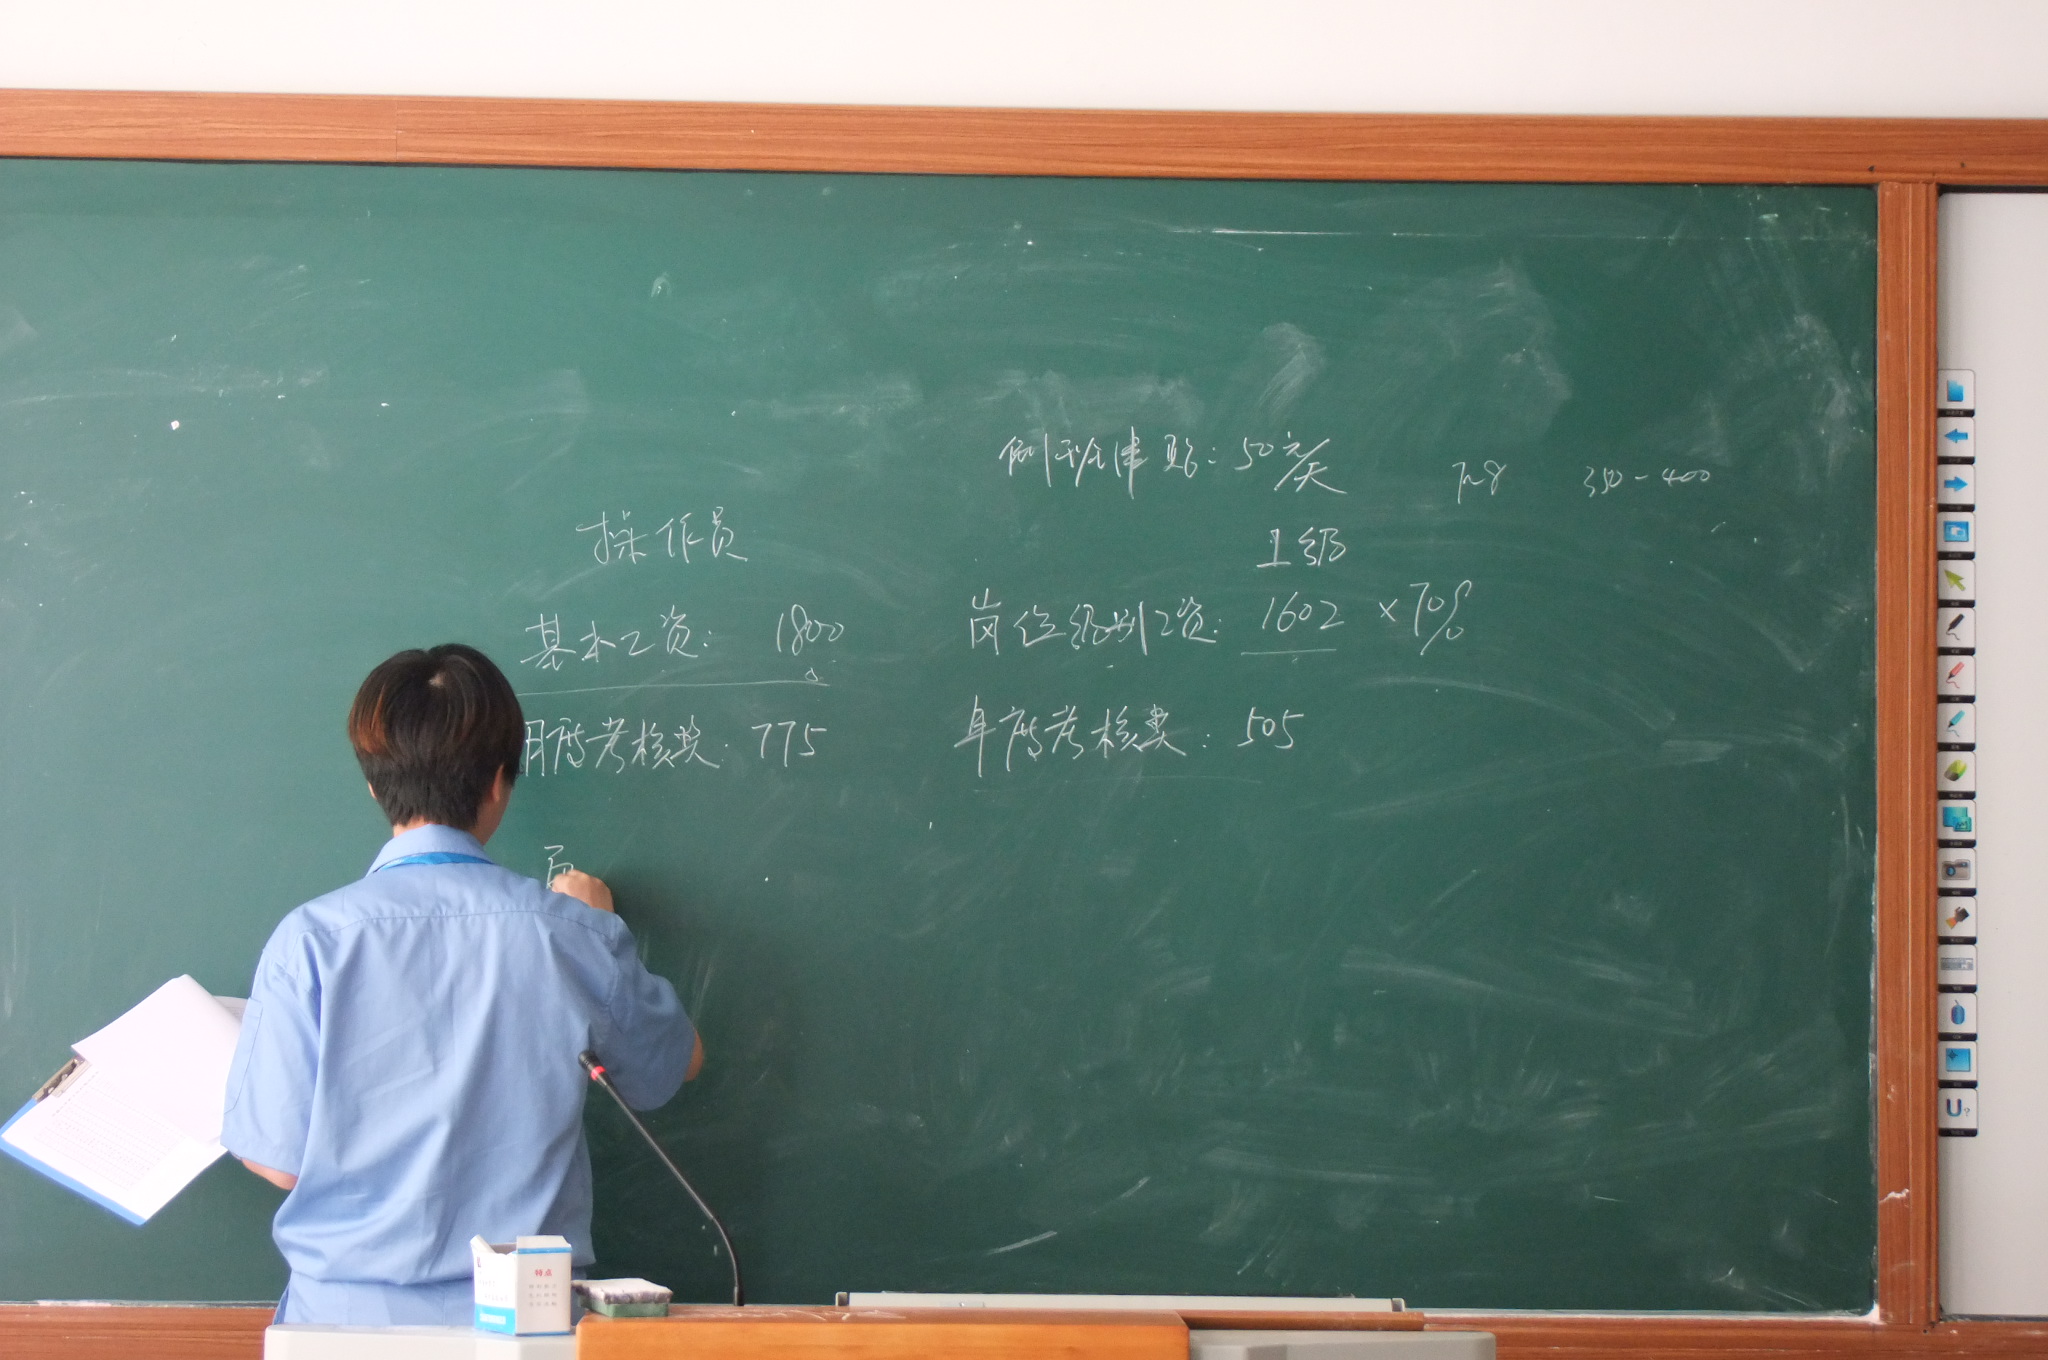 倒班津贴：50元/天 7~8 350-400
操作员 1级
基本工资：1800 岗位级别工资：1602 ×70%
月度考核奖：775 年度考核奖：505
特点